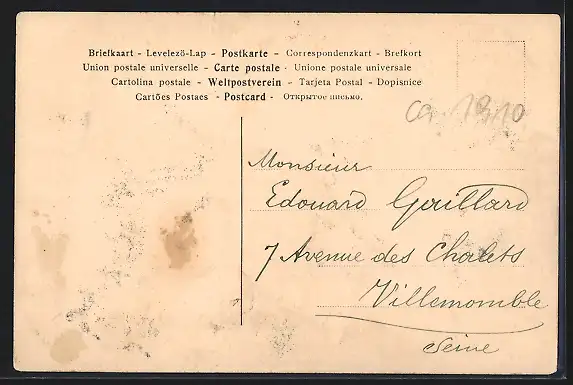 Briefkaart - Levelezö-Lap - Postkarte - Correspondenzkart - Brefkort
Union postale universelle - Carte postale - Unione postale universale
Cartolina postale - Weltpostverein - Tarjeta Postal - Dopisnice
Cartões Postaes - Postcard - Открытое письмо.
ca 1910
Monsieur
Edouard Gaillard
7 Avenue des Chalets
Villemomble
Seine